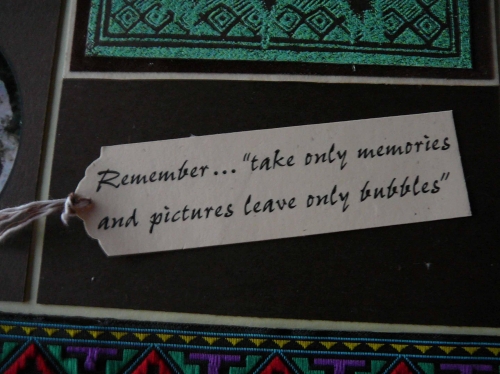 Remember..."take only memories
and pictures leave only bubbles"